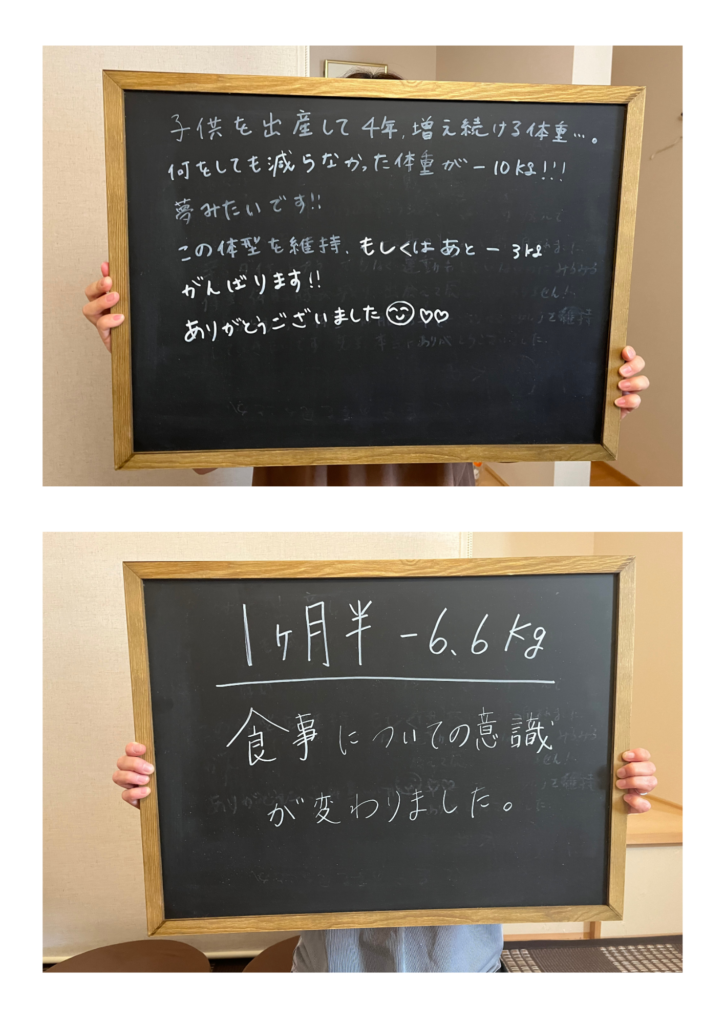 子供を出産して4年,増え続ける体重…。
何をしても減らなかった体重が−10kg!!!
夢みたいです!!
この体型を維持、もしくはあと−3kg
がんばります!!
ありがとうございました
1ヶ月半 −6.6kg
食事についての意識
が変わりました。